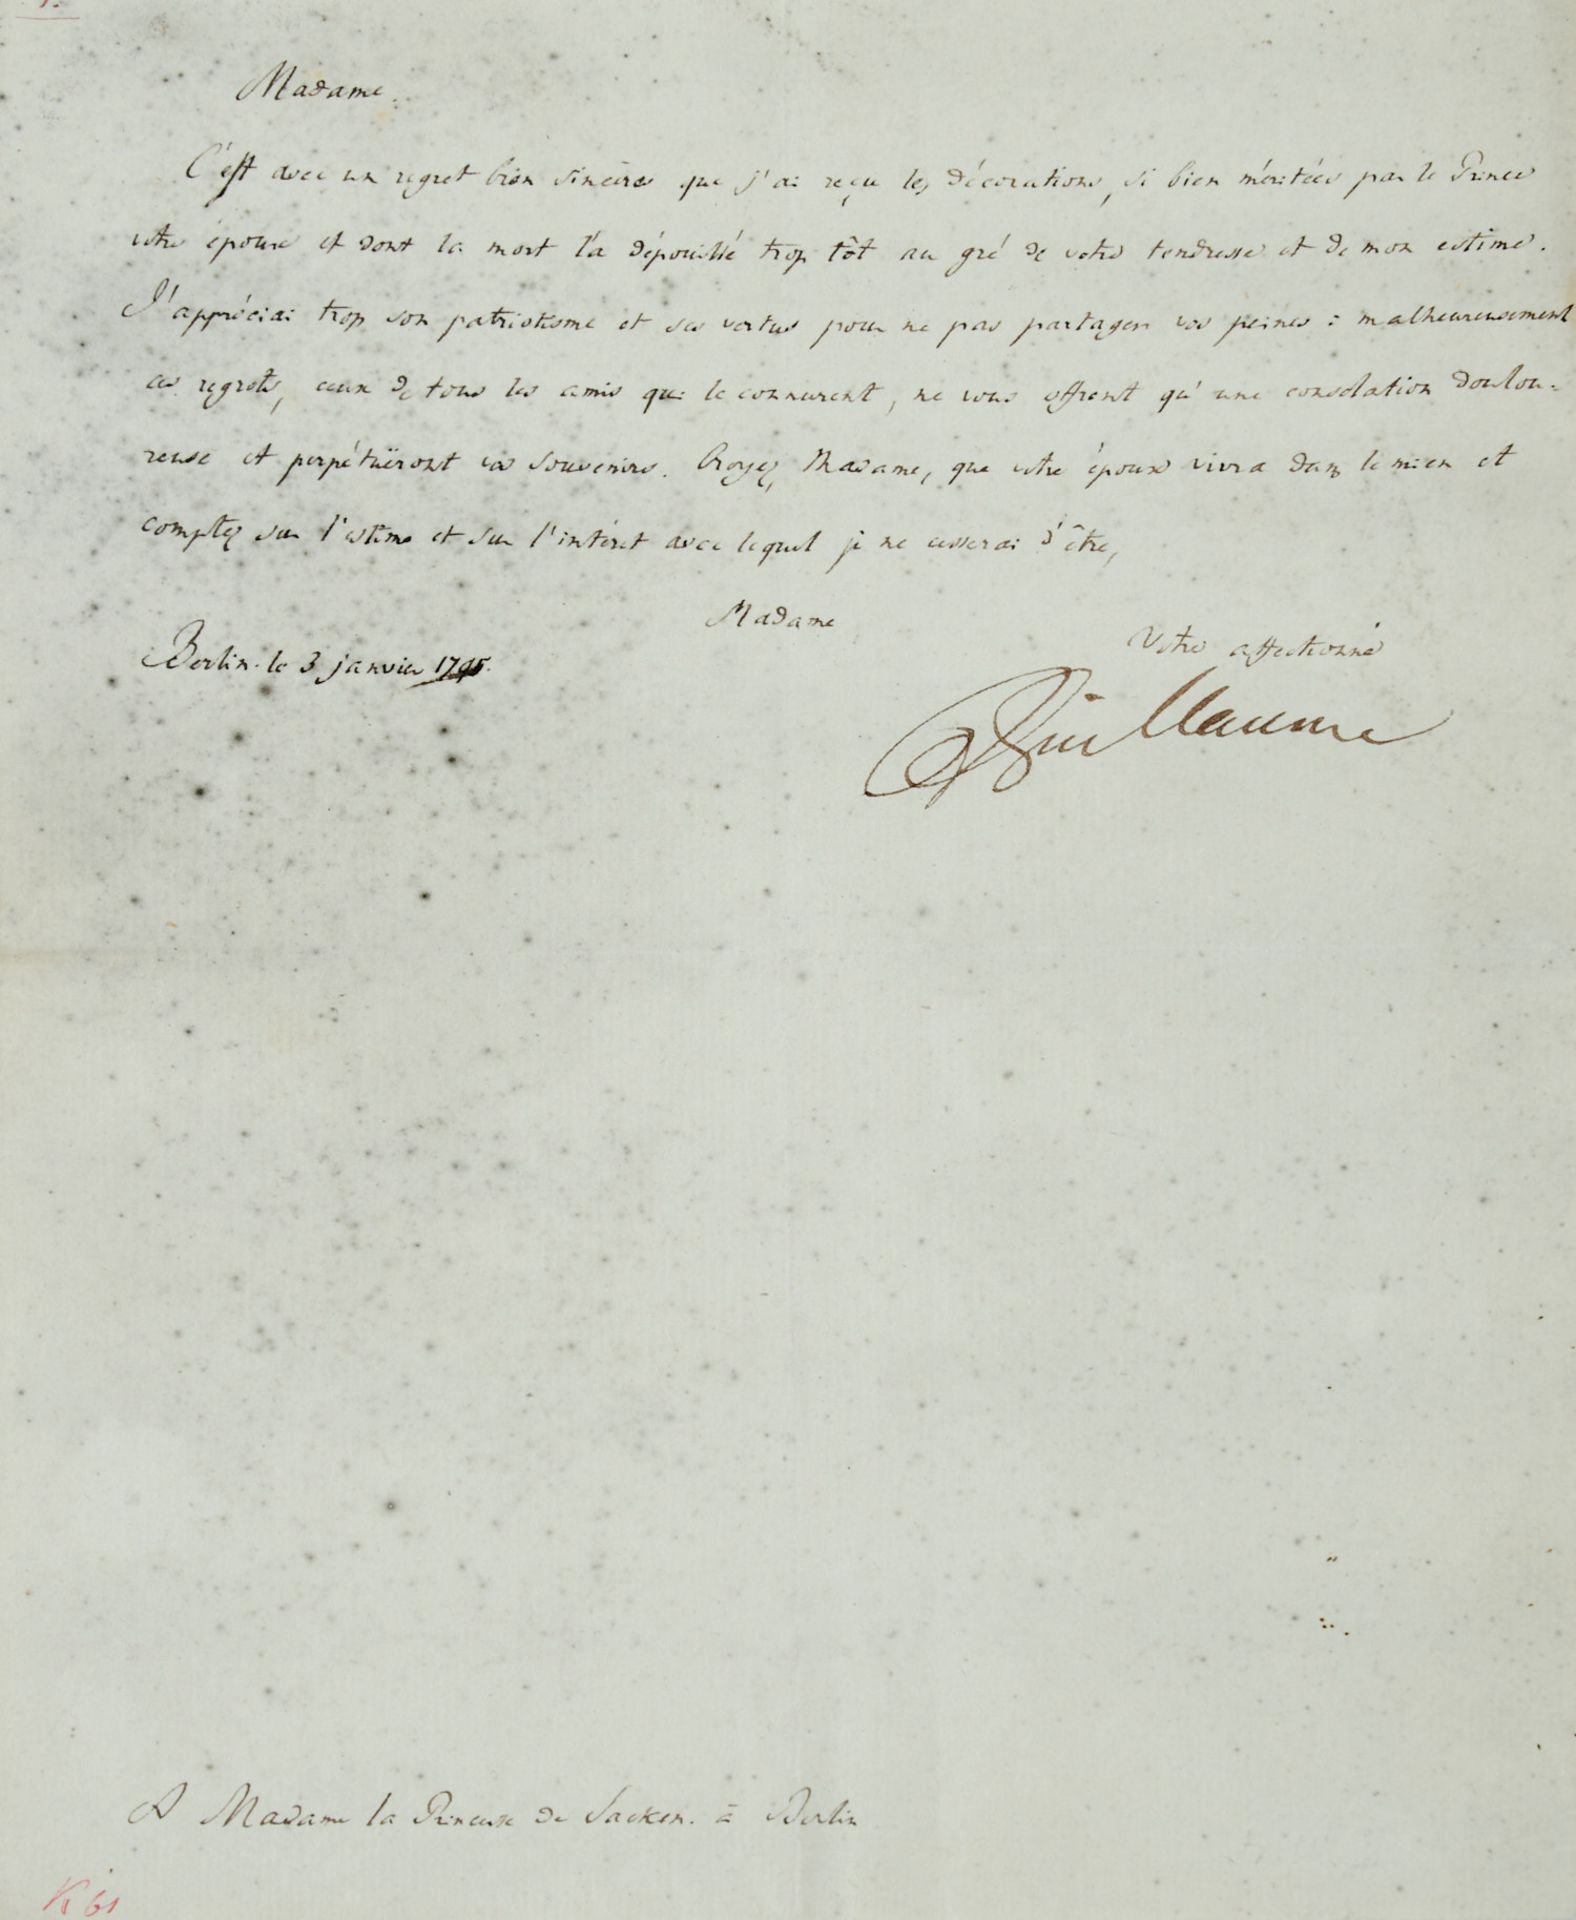 Madame.
C'est avec un regret bien sincère que j'ai reçu les décorations, si bien méritées par le Prince
votre époux et dont la mort l'a dépouillé trop tôt au gré de votre tendresse et de mon estime.
J'appréciai trop son patriotisme et ses vertus pour ne pas partager vos peines : malheureusement
ces regrets, ceux de tous les amis qui le connurent, ne vous offrent qu'une consolation doulou-
reuse et perpétuëront vos souvenirs. Croyez, Madame, que votre époux vivra dans le mien et
comptez sur l'estime et sur l'intéret avec lequel je ne cesserai d'être,
Madame
Votre affectionné
Berlin. le 3 janvier 1795.
Guillaume
A Madame la Princesse de Sacken. à Berlin
K 61